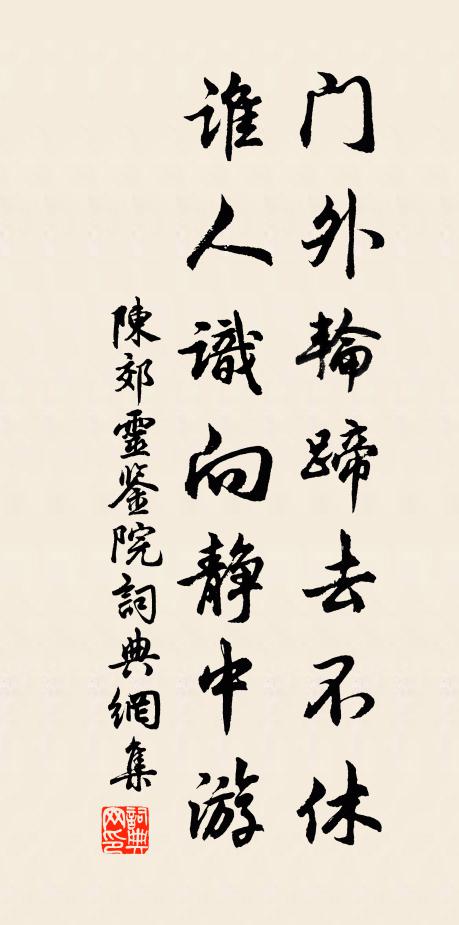 门外輪蹄去不休
谁人識向静中游
陳郊靈鉴院詞典網集
詞典网印